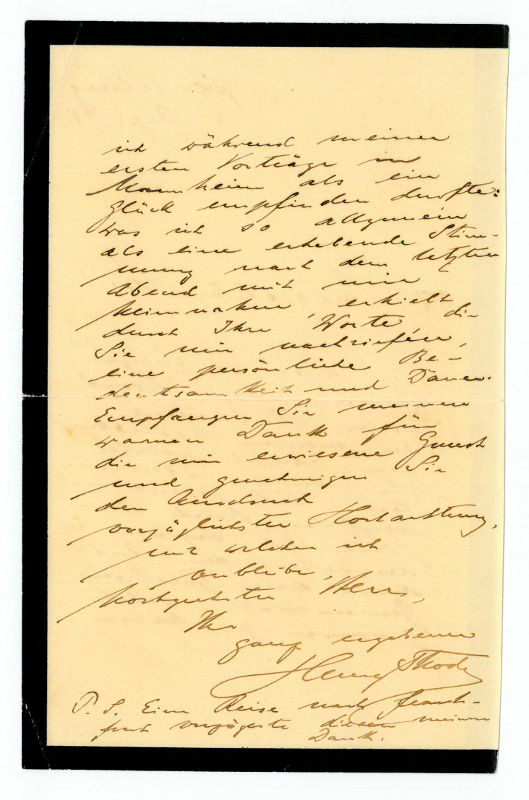 ich während meiner
ersten Vorträge in
Mannheim als ein
Glück empfinden durfte:
was ich so allgemein
als eine erhebende Stim-
mung nach dem letzten
Abend mit mir
heimnahm, erhielt
durch Ihre Worte, die
Sie mir nachriefen,
eine persönliche Be-
deutsamkeit und Dauer.
Empfangen Sie meinen
warmen Dank für
die mir erwiesene Gunst
und genehmigen Sie
den Ausdruck
vorzüglichster Hochachtung,
mit welcher ich
verbleibe,
hochgeehrter Herr,
Ihr
ganz ergebener
Henry Thode
P. S. Eine Reise nach Frank-
furt verzögerte diesen meinen
Dank.